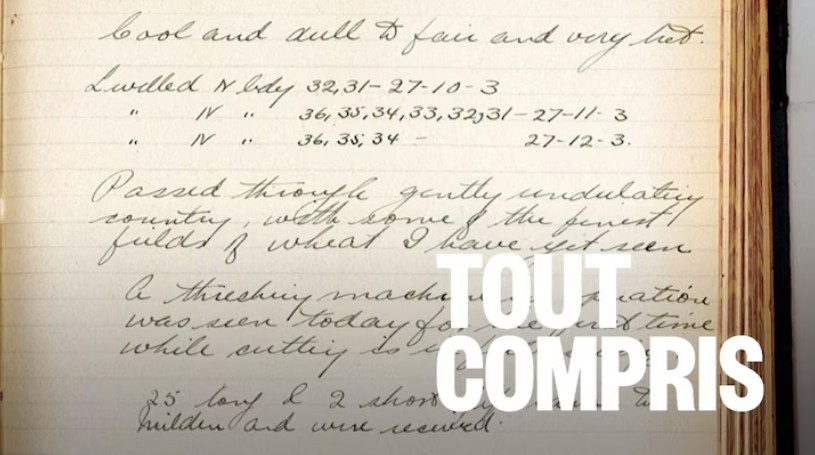 Cool and dull to fair and very hot.
Levelled N bdy 32,31-27-10-3
" N " 36,35,34,33,32,31-27-11-3
" N " 36,35,34 - 27-12-3.
Passed through gently undulating
country, with some of the finest
fields of wheat I have yet seen
A threshing
was seen today for the first time
while cutting is
25 long & 2 short
and were received.
TOUT
COMPRIS